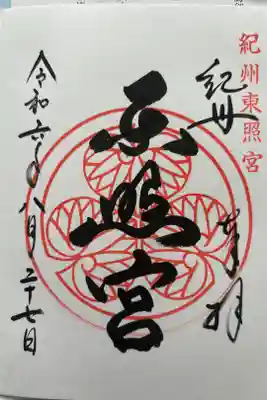 紀州東照宮
紀州
奉拝
東照宮
令和六年八月二十七日